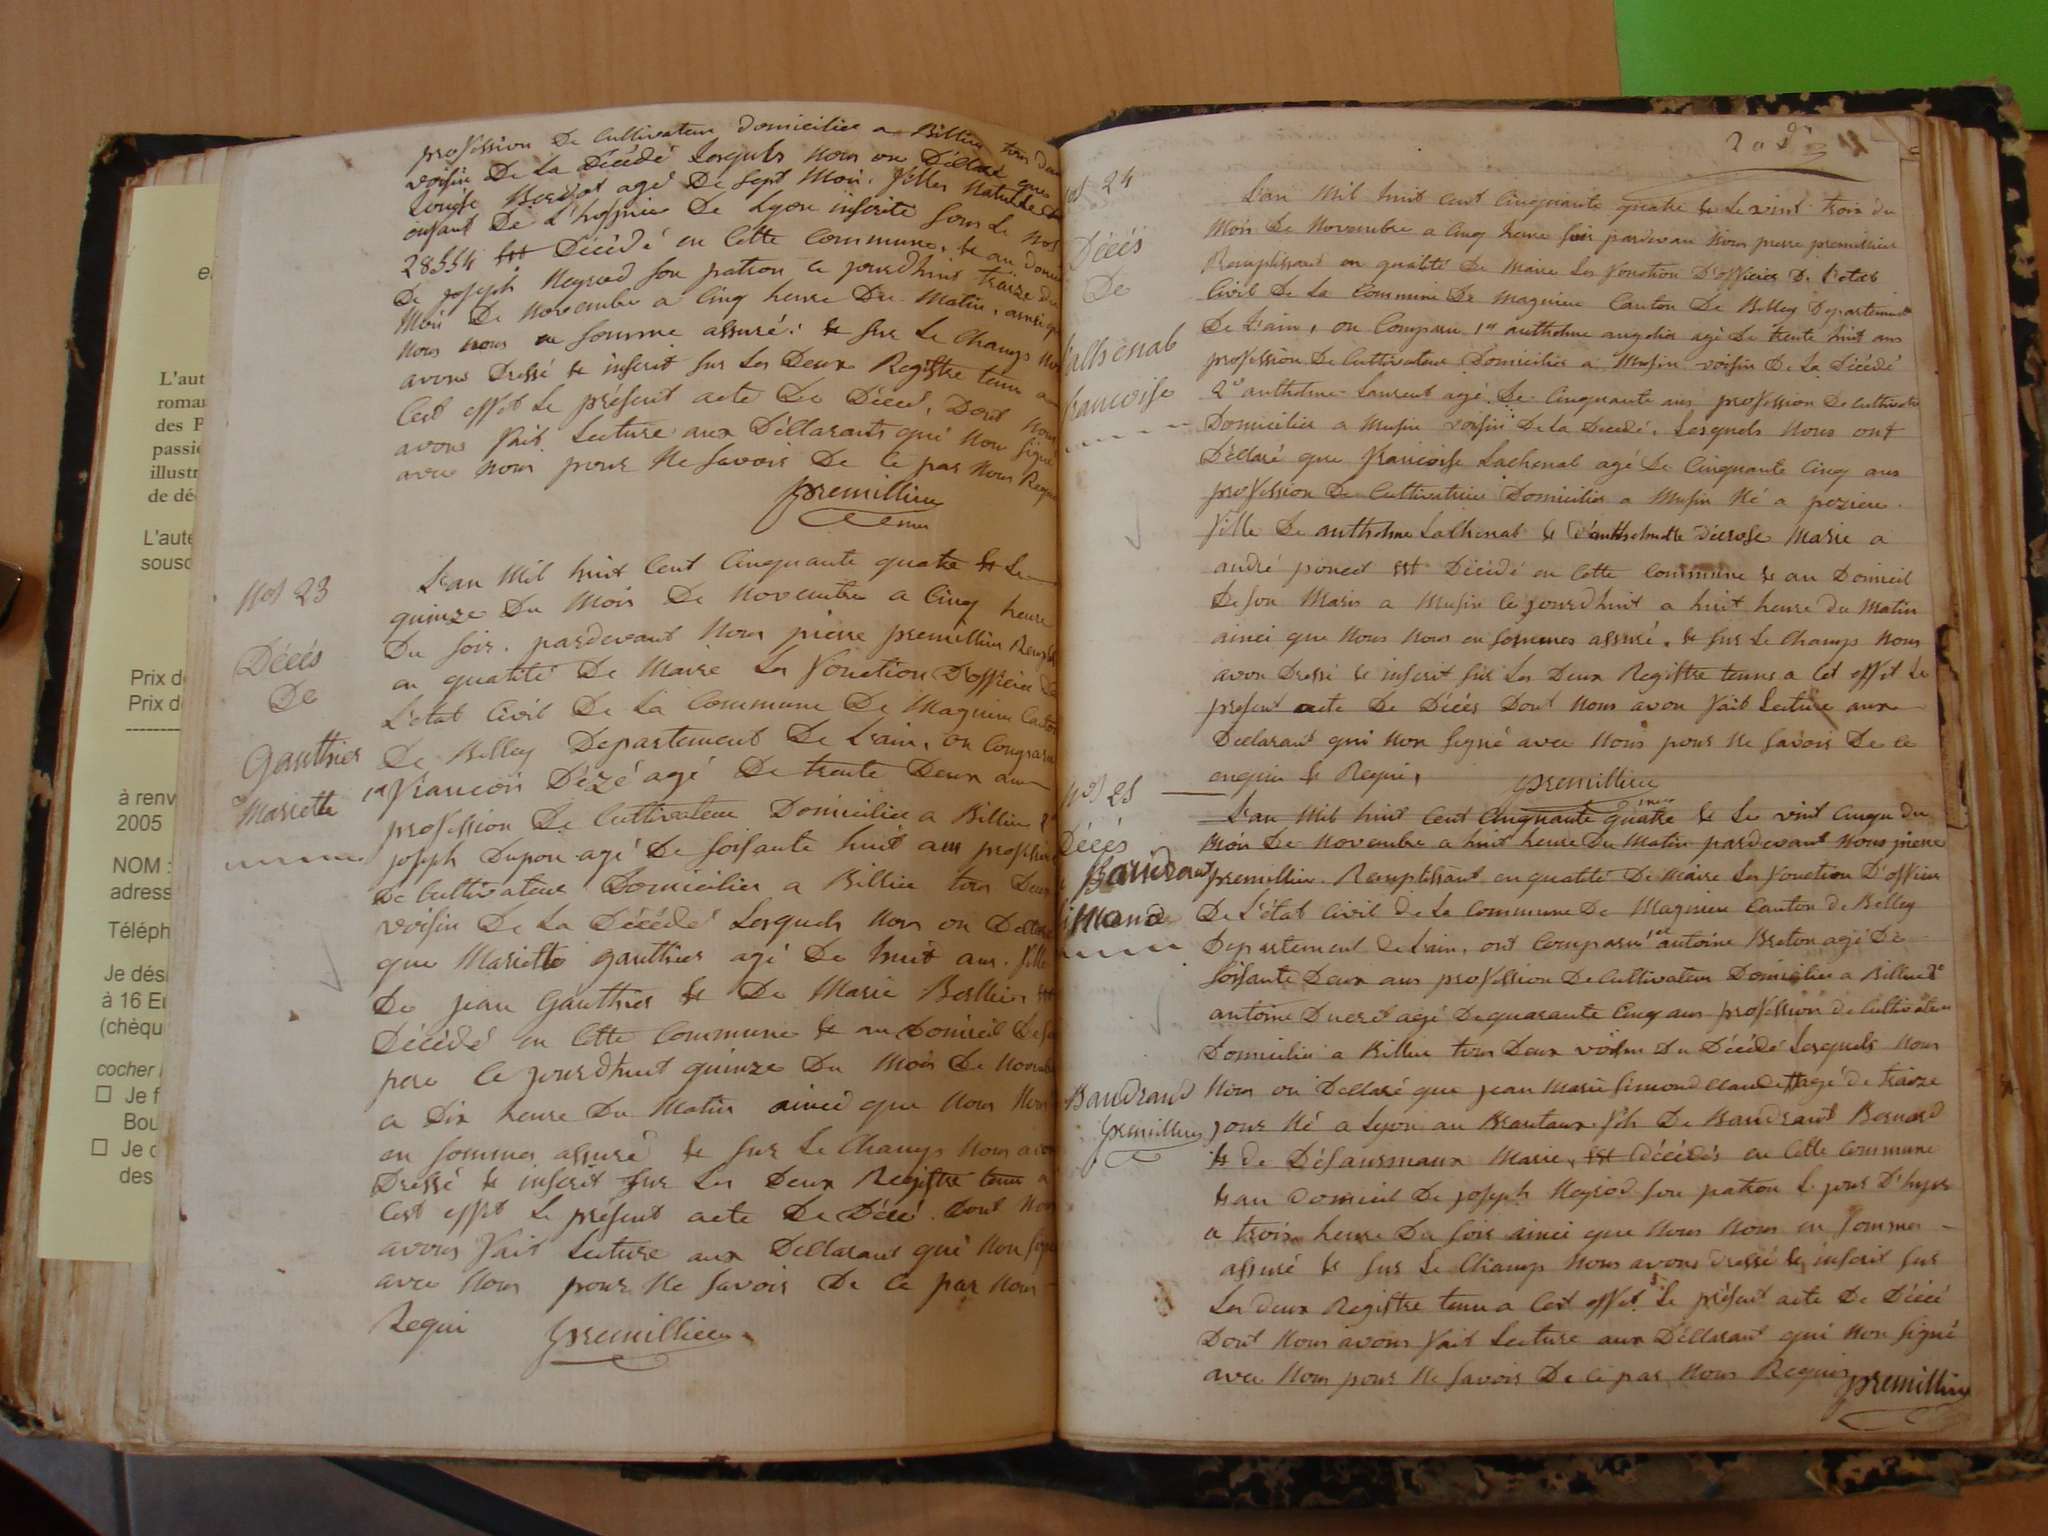 profession De Cultivateur domicilier a Billieu tous deux
voisin De La Décédé Lesquels nous on Déclaré que
Louise agé De Sept Mois. filles Naturelle
enfant De L'hospice De Lyon inscrite Sous Le nos
28554 est Décédé en Cette Commune, & au domicil
De joseph Neyrod son patron ce jourdhuit traize du
Mois De Novembre a Cinq heure Du Matin, ainsi que
Nous nous en Somme assuré. & sur Le Champs Nous
avons Dressé & inscrit sur Les Deux Registre tenu a
Cest effet Le présent acte De Décé, Dont Nous
avons fait Lecture aux Déclarants qui Non signé
avec nous pour Ne Savoir De Ce par Nous Requi
premillieu
Nos 23
Décés
De
Gauthier
Mariette
L'an Mil huit Cent Cinquante quatre & Le
quinze Du Mois De Novembre a Cinq heure
Du Soir. pardevant Nous pierre premillieu
en qualité De Maire Les fonction D'officier De
L'etat Civil De La Commune De Magnieu Canton
De Belley Departement De L'ain, on Comparu
1er françois Dézé agé De trente Deux ans
profession De Cultivateur Domicilier a Billieu
joseph Dupon agé De soisante huit ans profession
De Cultivateur Domicilier a Billieu tous Deux
voisin De La Décédé Lesquels Nous on Déclaré
que Mariette gauthier agé De huit ans. fille
De jean Gauthier & De Marie Berllier est
Décédé en Cette Commune & au Domicil De son
pere Ce jourdhuit quinze Du Mois De Novembre
a Dix heure Du Matin ainci que Nous Nous
en sommes assuré & sur Le Champs Nous avons
Dressé & inscrit sur Les Deux Registre tenu a
Cest effet Le présent acte De Décé. Dont Nous
avons fait Lecture aux Déclarant qui Non signé
avec Nous pour Ne Savoir De Ce par Nous
Requi premillieu
nos 24
Décés
De
Lathenal
francoise
L'an Mil huit cent Cinquante quatre & Le vint trois du
Mois De Novembre a Cinq heure Soir pardevan Nous pierre premillieu
Remplissant en qualité De Maire Les fonction D'officier De L'etat
Civil De La Commune De Magnieu Canton De Belley Departement
De L'ain, on Comparu 1er anthelme agé De trente huit ans
profession De Cultivateur Domicilier a Musin voisin De La Décédé
2e anthelme Laurent agé De Cinquante ans profession De Cultivateur
Domicilier a Musin voisin De La Decedé, Lesquels Nous ont
Déclaré que francoise Lachenal agé De Cinquante Cinq ans
profession De Cultivatrice Domicilier a Musin Né a pezieu
fille De anthelme Lathenal & Marie a
andré poncet est Décédé en Cette Commune & au Domicil
De Son Maris a Musin Ce jourdhuit a huit heure du Matin
ainci que Nous Nous en sommes assuré. & Sur Le Champs Nous
avon Dressé & inscrit sur Les Deux Registre tenus a Cet effet Le
présent acte De Décés Dont Nous avon fait Lecture aux
Declarant qui Non signé avec Nous pour Ne Savoir De Ce
enquis & Requi, premillieu
nos 25
Décés
Bandrant
Simond
L'an Mil huit Cent Cinquante quatre & Le vint Cinqu du
Mois De Novembre a huit heure Du Matin pardevant Nous pierre
premillieu Remplissant en qualité De Maire Les fonction D'officier
De L'état Civil de La Commune De Magnieu Canton de Belley
Departement de L'ain, ont Comparu 1er antoine Breton agé De
soisante Deux ans profession De Cultivateur Domicilier a Billieu 2e
antoine Ducret agé De quarante Cinq ans profession de Cultivateur
Domicilier a Billieu tous Deux voisin Du Décédé Lesquels Nous
Nous on Déclaré que jean Marie Simond agé de traize
jour Né a Lyon au Brautaux fils De Bandrant Bernard
& de Marie, est décédés en Cette Commune
& au domicil De joseph Neyrod son patron Le jour D'hyer
a trois heure Du Soir ainci que Nous Nous en Sommes
assuré & sur Le Champ Nous avons dressé & inscrit sur
Les deux Registre tenu a Cest effet Le présent acte De Décé
Dont Nous avons fait Lecture aux Déclarant qui Non signé
avec Nous pour Ne Savoir De Ce par Nous Requis premillieu
Bandrand
premillieu
L'aut
roman
des P
passi
illustr
de dé
L'aute
sousc
Prix d
Prix d
à renv
2005
NOM :
adress
Téléph
Je dés
à 16 E
(chèqu
cocher
Je f
Bou
Je c
des